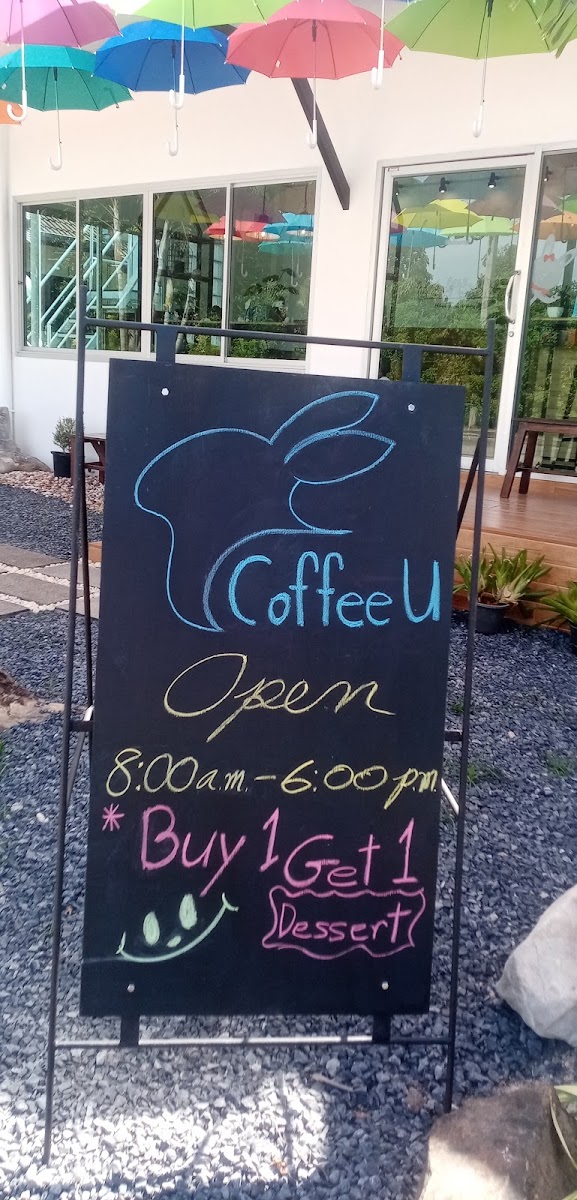 Coffee U
Open
8:00 a.m. - 6:00 p.m.
* Buy 1 Get 1
Dessert